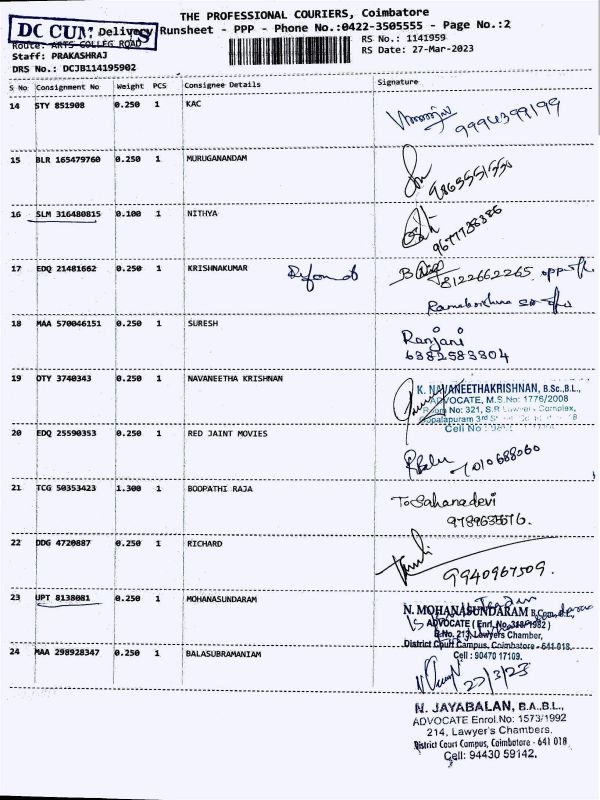 THE PROFESSIONAL COURIERS, Coimbatore
DOCUMENTS Delivery Runsheet - PPP - Phone No.:0422-3505555 - Page No.:2
Route: ARTS COLLEG ROAD RS No.: 1141959
Staff: PRAKASHRAJ RS Date: 27-Mar-2023
DRS No.: DCJB114195902
S No Consignment No Weight PCS Consignee Details Signature
14 STY 851908 0.250 1 KAC
9994399199
15 BLR 165479760 0.250 1 MURUGANANDAM
9865551550
16 SLM 316480815 0.100 1 NITHYA
9677738386
17 EDQ 21481662 0.250 1 KRISHNAKUMAR
8122662265
18 MAA 570046151 0.250 1 SURESH Ranjani
6382583804
19 OTY 3740343 0.250 1 NAVANEETHA KRISHNAN
K. NAVANEETHAKRISHNAN, B.Sc.,B.L.,
ADVOCATE, M.S.No: 1776/2008
Room No: 321, S.R Lawyers Complex,
Gopalapuram 3rd
Cell No :
20 EDQ 25590353 0.250 1 RED JAINT MOVIES
7010688060
21 TCG 50353423 1.300 1 BOOPATHI RAJA To Sahanadevi
22 DDG 4720887 0.250 1 RICHARD
9940967509.
23 UPT 8138081 0.250 1 MOHANASUNDARAM
N. MOHANASUNDARAM B.Com.,B.L.,
ADVOCATE (Enrl. No. 318/1982)
B.No. 213, Lawyers Chamber,
District Court Campus, Coimbatore - 641 018.
Cell : 90470 17109.
24 MAA 298928347 0.250 1 BALASUBRAMANIAM
27/3/23
N. JAYABALAN, B.A.,B.L.,
ADVOCATE Enrol.No: 1573/1992
214, Lawyer's Chambers,
District Court Campus, Coimbatore - 641 018
Cell: 94430 59142.